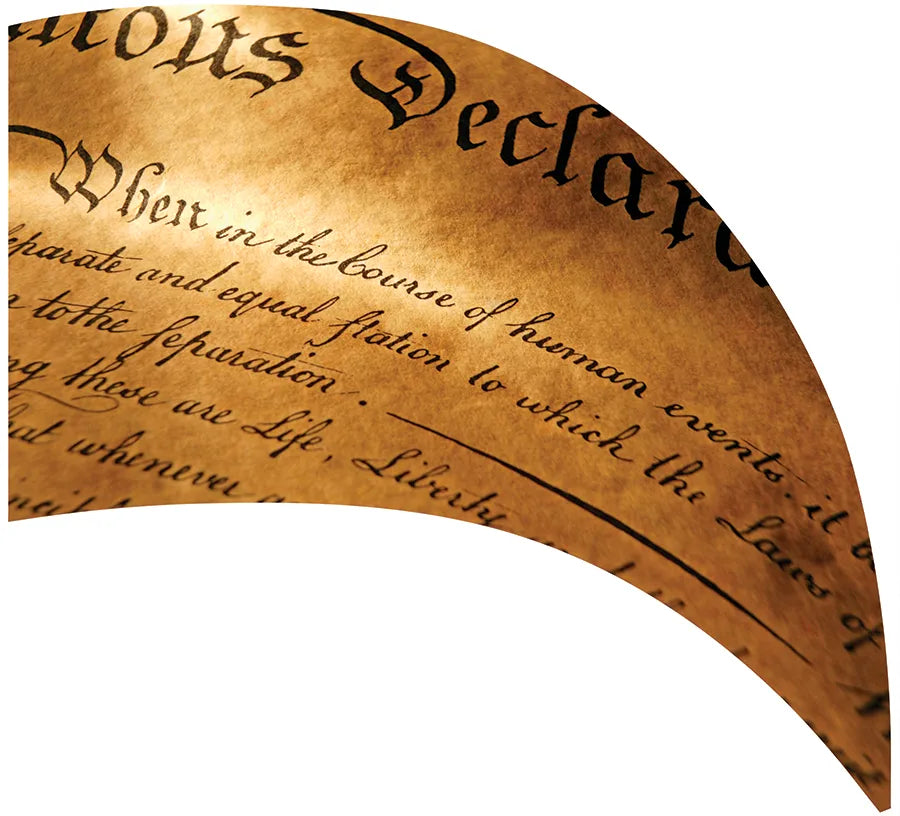 mous Declara
When in the Course of human events, it b
separate and equal station to which the Laws of
n to the separation.
ng these are Life, Liberty
hat whenever